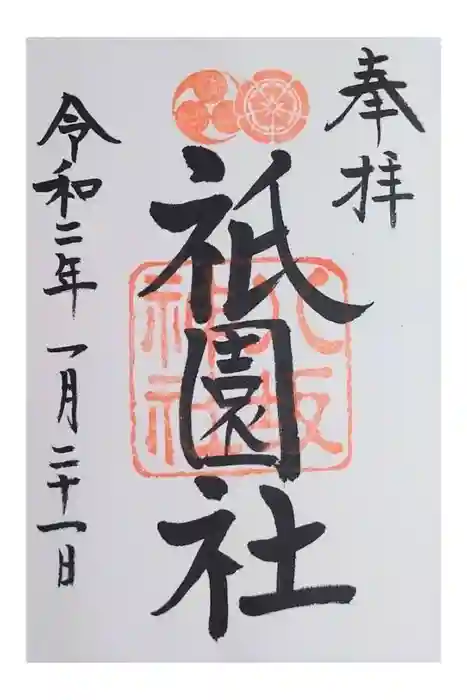 奉拝
八坂
神社
祇園社
令和二年一月二十一日